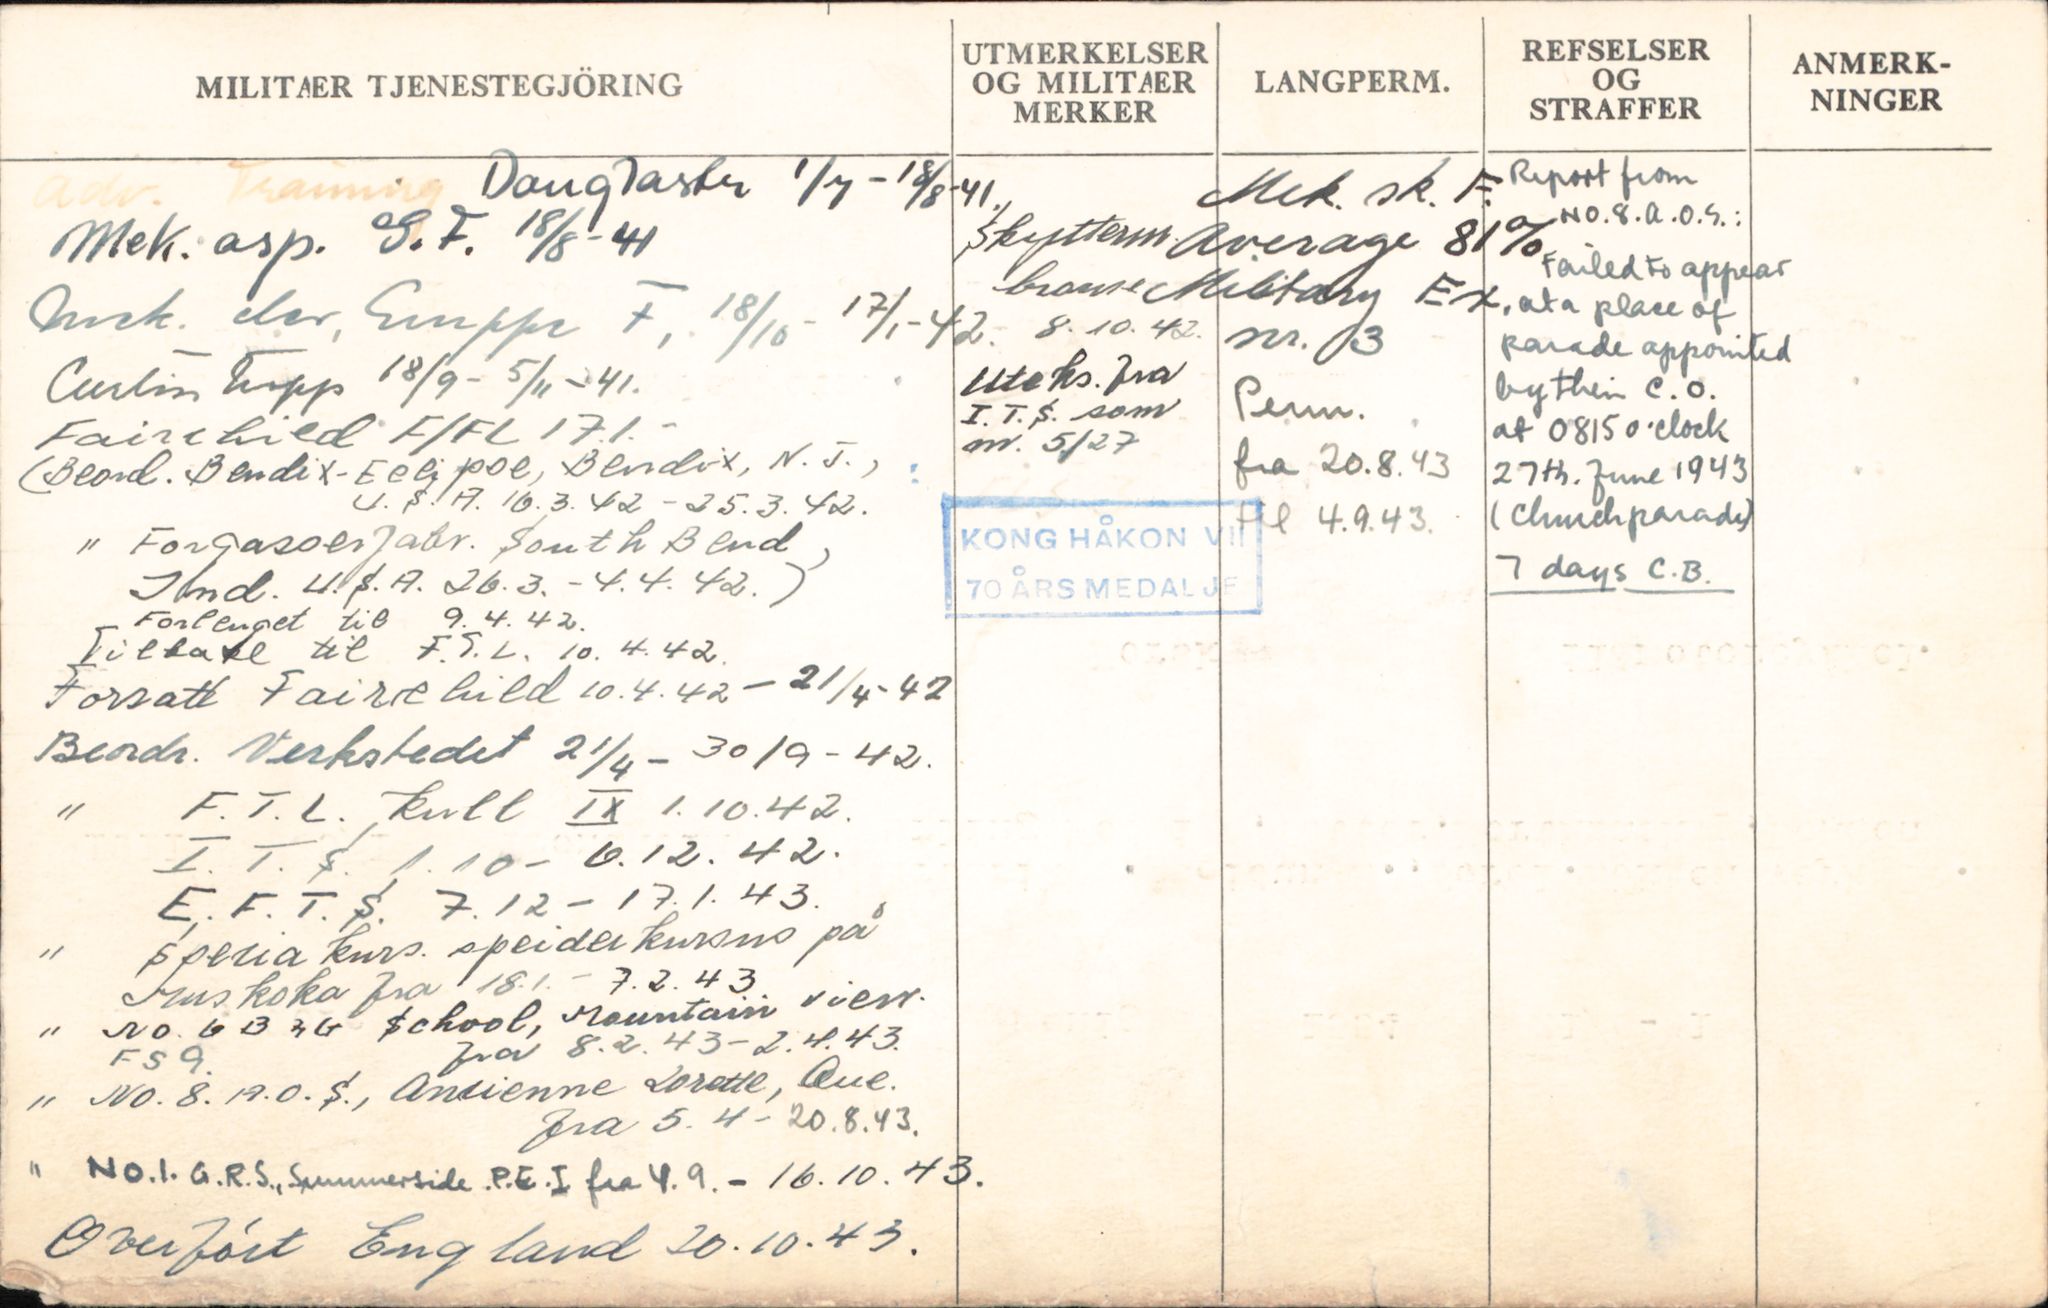 MILITÆR TJENESTEGJÖRING
Adv. Training Douglaster 1/7 - 18/8-41.
Mek. asp. G.F. 18/8-41
Mek. elev, Gruppe F, 18/10 - 17/1-42.
Curtiss Tropp 18/9 - 5/11 - 41.
Fairchild F/FL 17.1. -
(Beord. Bendix-Eclipse, Bendix, N.J.,
U.S.A. 16.3.42 - 25.3.42.
" Forgasserfabr. South Bend,
Ind. U.S.A. 26.3. - 4.4.42.)
Forlenget til 9.4.42.
Tilbake til F.T.L. 10.4.42.
Forsatt Fairchild 10.4.42 - 21/4-42
Beordr. Verkstedet 21/4 - 30/9-42.
" F.T.L. kull IX 1.10.42.
I.T.S. 1.10 - 6.12.42.
E.F.T.S. 7.12 - 17.1.43.
" Speria kurs. speiderkursus på
Muskoka fra 18.1. - 7.2.43
" No. 6 B & G School, Mountain view.
FS9. fra 8.2.43 - 2.4.43.
" No. 8. A.O.S., Ancienne Lorette, Que.
fra 5.4 - 20.8.43.
" NO.1. G.R.S., Summerside. P.E.I fra 4.9. - 16.10.43.
Overfört England 20.10.43.
UTMERKELSER
OG MILITÆR
MERKER
Skytterm.
bronse
8.10.42.
Uteks. fra
I.T.S. som
nr. 5/27
KONG HÅKON VII
70 ÅRS MEDALJE
LANGPERM.
Mek. sk. F.
Average 81%
Military Ex.
nr. 3
Perm.
fra 20.8.43
til 4.9.43.
REFSELSER
OG
STRAFFER
Report from
NO.8.A.O.S.:
Failed to appear
at a place of
parade appointed
by their C.O.
at 0815 o'clock
27th. June 1943
(Churchparade)
7 days C.B.
ANMERK-
NINGER